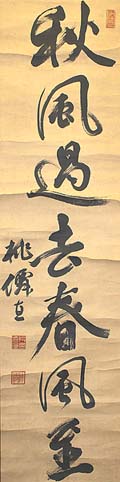 秋風過去春風至
桃僊直